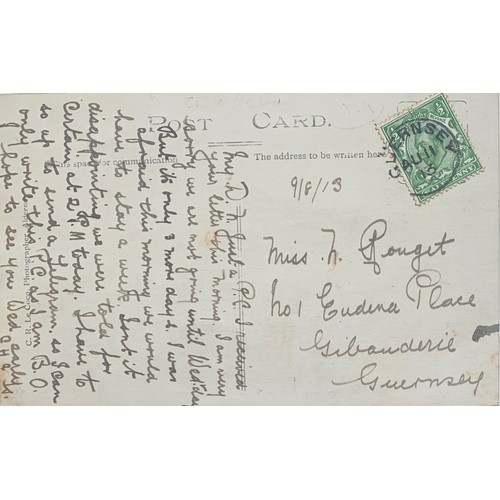 POST CARD.
This space for communication
The address to be written here
GUERNSEY
AU 11
13
9/8/13
Miss N. Rouget
No 1 Eudina Place
Gibauderie
Guernsey
My D. N. Just a P.C. I received
your letter this morning. I am very
sorry we are not going until Wed'day
But its only 3 more days. I was
afraid this morning we would
have to stay a week. Isnt it
disappointing we were told for
certain at 2 P.M today. I have to
so up to send a Telegram, so I can
only write this P.C. as I am B.O.
I hope to see you Wed early